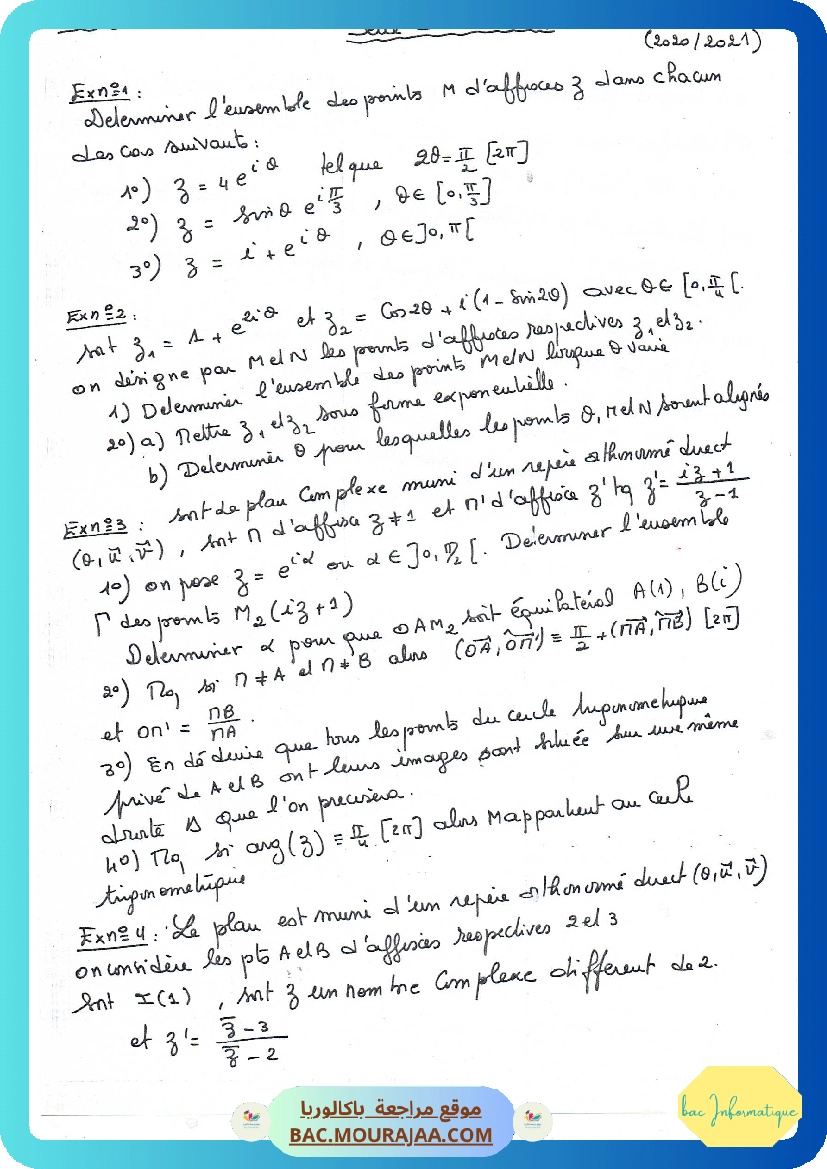 (2020/2021)
Exn°1 :
Determiner l'ensemble des points M d'affixes z dans chacun
des cas suivants :
1°) z = 4e^{iθ} tel que 2θ = π/2 [2π]
2°) z = sinθ e^{iπ/3} , θ ∈ [0, π/3]
3°) z = i + e^{iθ} , θ ∈ ]0, π[
Exn°2 :
Soit z₁ = 1 + e^{2iθ} et z₂ = Cos2θ + i(1 - Sin2θ) avec θ ∈ [0, π/4[.
on désigne par M et N les points d'affixes respectives z₁ et z₂.
1) Determiner l'ensemble des points M et N lorsque θ varie
2°) a) Mettre z₁ et z₂ sous forme exponentielle.
b) Determiner θ pour lesquelles les points O, M et N soient alignés
Exn°3 : Soit le plan Complexe muni d'un repère orthonormé direct
(O, u⃗, v⃗) , soit M d'affixe z ≠ 1 et M' d'affixe z' tq z' = (iz + 1)/(z - 1)
1°) on pose z = e^{iα} ou α ∈ ]0, π/2[. Determiner l'ensemble
Γ des points M₂(iz + 1)
Determiner α pour que OAM₂ soit équilatéral A(1), B(i)
2°) Mq si M ≠ A et M ≠ B alors (OA⃗, OM'⃗) ≡ π/2 + (MA⃗, MB⃗) [2π]
et OM' = MB/MA .
3°) En déduire que tous les points du cercle trigonometrique
privé de A et B ont leurs images sont située sur une même
droite Δ que l'on precisera.
4°) Mq si arg(z) ≡ π/4 [2π] alors M appartient au cercle
trigonometrique
Exn°4 : Le plan est muni d'un repère orthonormé direct (O, u⃗, v⃗)
on considère les pts A et B d'affixes respectives 2 et 3
Soit I(1) , soit z un nombre Complexe different de 2.
et z' = (z̄ - 3)/(z̄ - 2)
bac Informatique
موقع مراجعة باكالوريا
BAC.MOURAJAA.COM